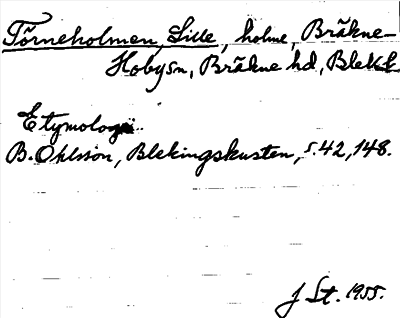 Törneholmen, Lille, holme, Bräkne-
Hobysn, Bräkne hd, Blek.
Etymologi.
B. Ohlsson, Blekingskusten, s. 42, 148.
J St. 1955.